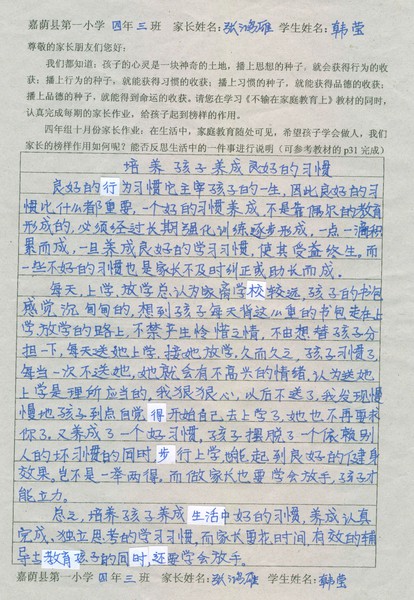 嘉荫县第一小学 四年三班 家长姓名:张鸿雁 学生姓名:韩莹
尊敬的家长朋友们您好:
我们都知道:孩子的心灵是一块神奇的土地,播上思想的种子,就会获得行为的收
获;播上行为的种子,就能获得习惯的收获;播上习惯的种子,就能获得品德的收获;
播上品德的种子,就能得到命运的收获。请您在学习《不输在家庭教育上》教材的同时,
认真完成每期的家长作业,给孩子起到榜样的作用。
四年组十月份家长作业:在生活中,家庭教育随处可见,希望孩子学会做人,我们
家长的榜样作用如何呢?能否反思生活中的一件事进行说明(可参考教材的p31完成)
培养孩子养成良好的习惯
良好的行为习惯它主宰孩子的一生,因此良好的习
惯比什么都重要,一个好的习惯养成,不是靠偶尔的教育
形成的,必须经过长期强化训练逐步形成,一点一滴积
累而成,一旦养成良好的学习习惯,使其受益终生。而
一些不好的习惯也是家长不及时纠正或助长而成。
每天,上学,放学总认为家离学校较远,孩子的书包
感觉沉甸甸的,想到孩子每天背这么重的书包走在上
学放学的路上,不禁产生怜惜之情,不由想替孩子分
担一下,每天送她上学,接她放学,久而久之,孩子习惯了,
每当一次不送她,她就会有不高兴的情绪,认为送她
上学是理所应当的,我狠狠心,以后不送了,我发现慢
慢地孩子到点自觉得开始自己去上学了,她也不再要求
你了。又养成了一个好习惯,孩子摆脱了一个依赖别
人的坏习惯的同时步行上学也能起到良好的健身
效果。岂不是一举两得,而做家长也要学会放手,孩子才
能立力。
总之,培养孩子养成生活中好的习惯,养成认真
完成、独立思考的学习习惯,而家长要花时间,有效的辅
导与教育孩子的同时,还要学会放手。
嘉荫县第一小学 四年三班 家长姓名:张鸿雁 学生姓名:韩莹